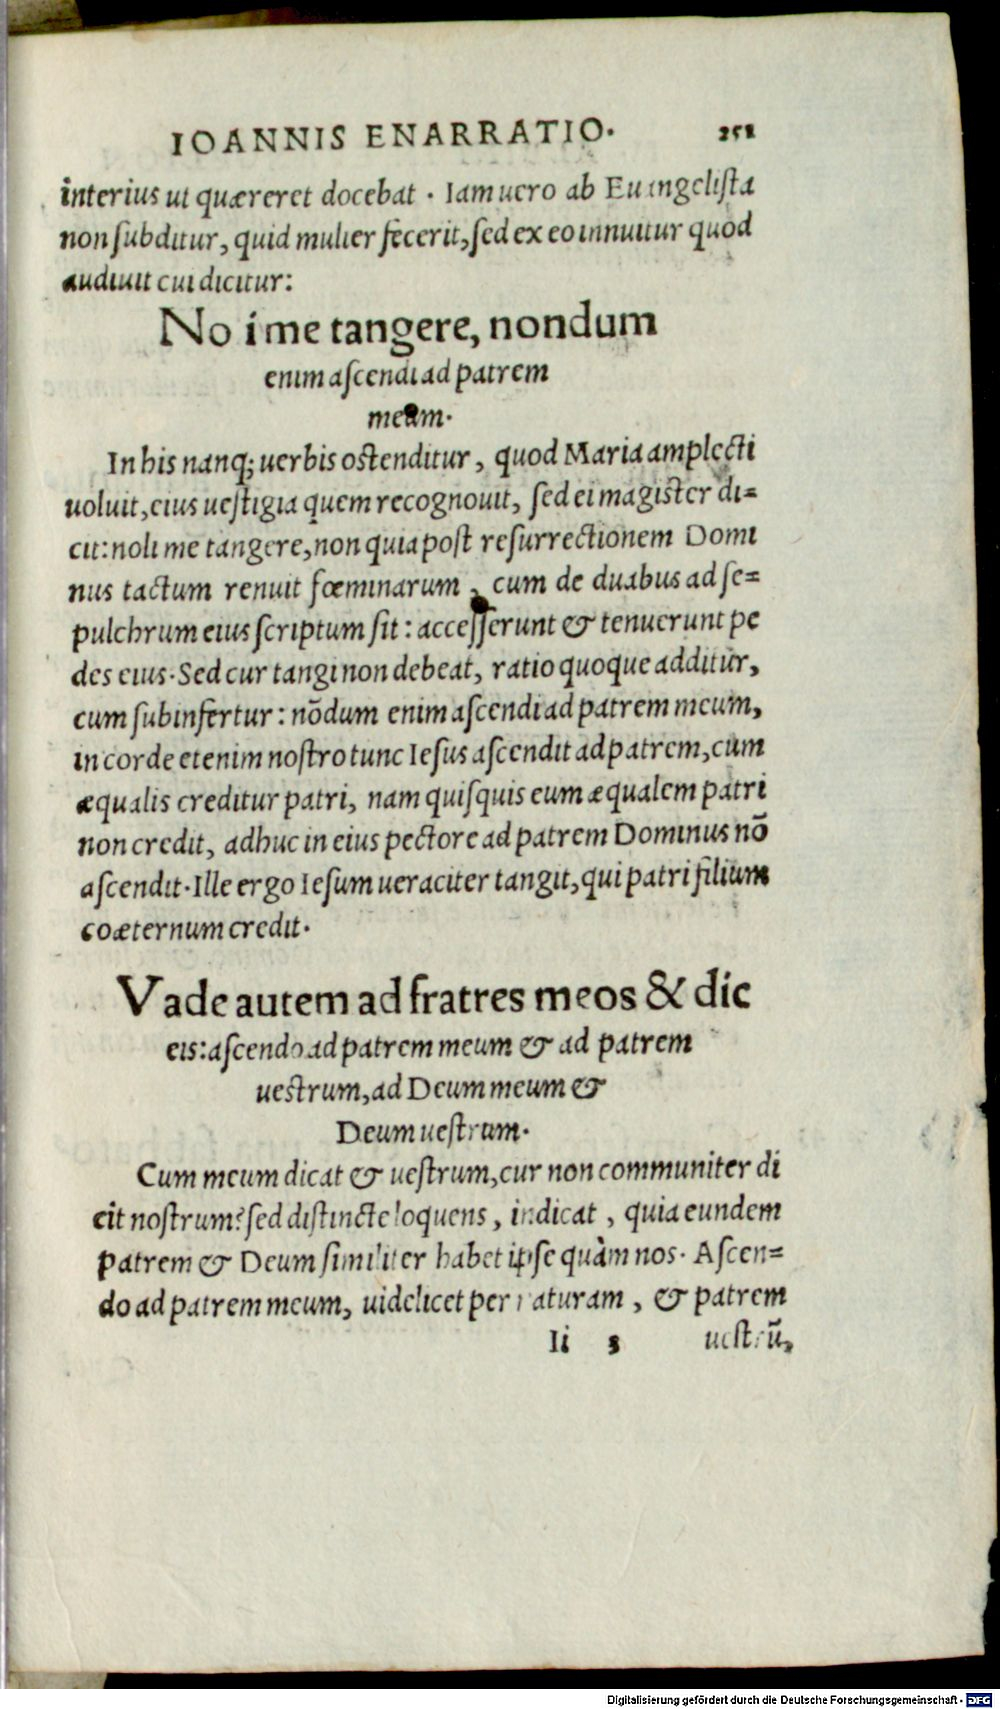 IOANNIS ENARRATIO. 251
interius ut quæreret docebat . Iam uero ab Euangelista
non subditur, quid mulier fecerit, sed ex eo innuitur quod
audiuit cui dicitur:
Noli me tangere, nondum
enim ascendi ad patrem
meum.
In his nanq; uerbis ostenditur, quod Maria amplecti
uoluit, eius uestigia quem recognouit, sed ei magister di=
cit: noli me tangere, non quia post resurrectionem Domi
nus tactum renuit fœminarum , cum de duabus ad se=
pulchrum eius scriptum sit : accesserunt & tenuerunt pe
des eius. Sed cur tangi non debeat, ratio quoque additur,
cum subinfertur : nōdum enim ascendi ad patrem meum,
in corde etenim nostro tunc Iesus ascendit ad patrem, cum
æqualis creditur patri, nam quisquis eum æqualem patri
non credit, adhuc in eius pectore ad patrem Dominus nō
ascendit. Ille ergo Iesum ueraciter tangit, qui patri filium
coæternum credit.
Vade autem ad fratres meos & dic
eis: ascendo ad patrem meum & ad patrem
uestrum, ad Deum meum &
Deum uestrum.
Cum meum dicat & uestrum, cur non communiter di
cit nostrum? sed distincte loquens, indicat , quia eundem
patrem & Deum similiter habet ipse quàm nos. Ascen=
do ad patrem meum, uidelicet per naturam , & patrem
Ii 3 uestrū,
Digitalisierung gefördert durch die Deutsche Forschungsgemeinschaft - DFG